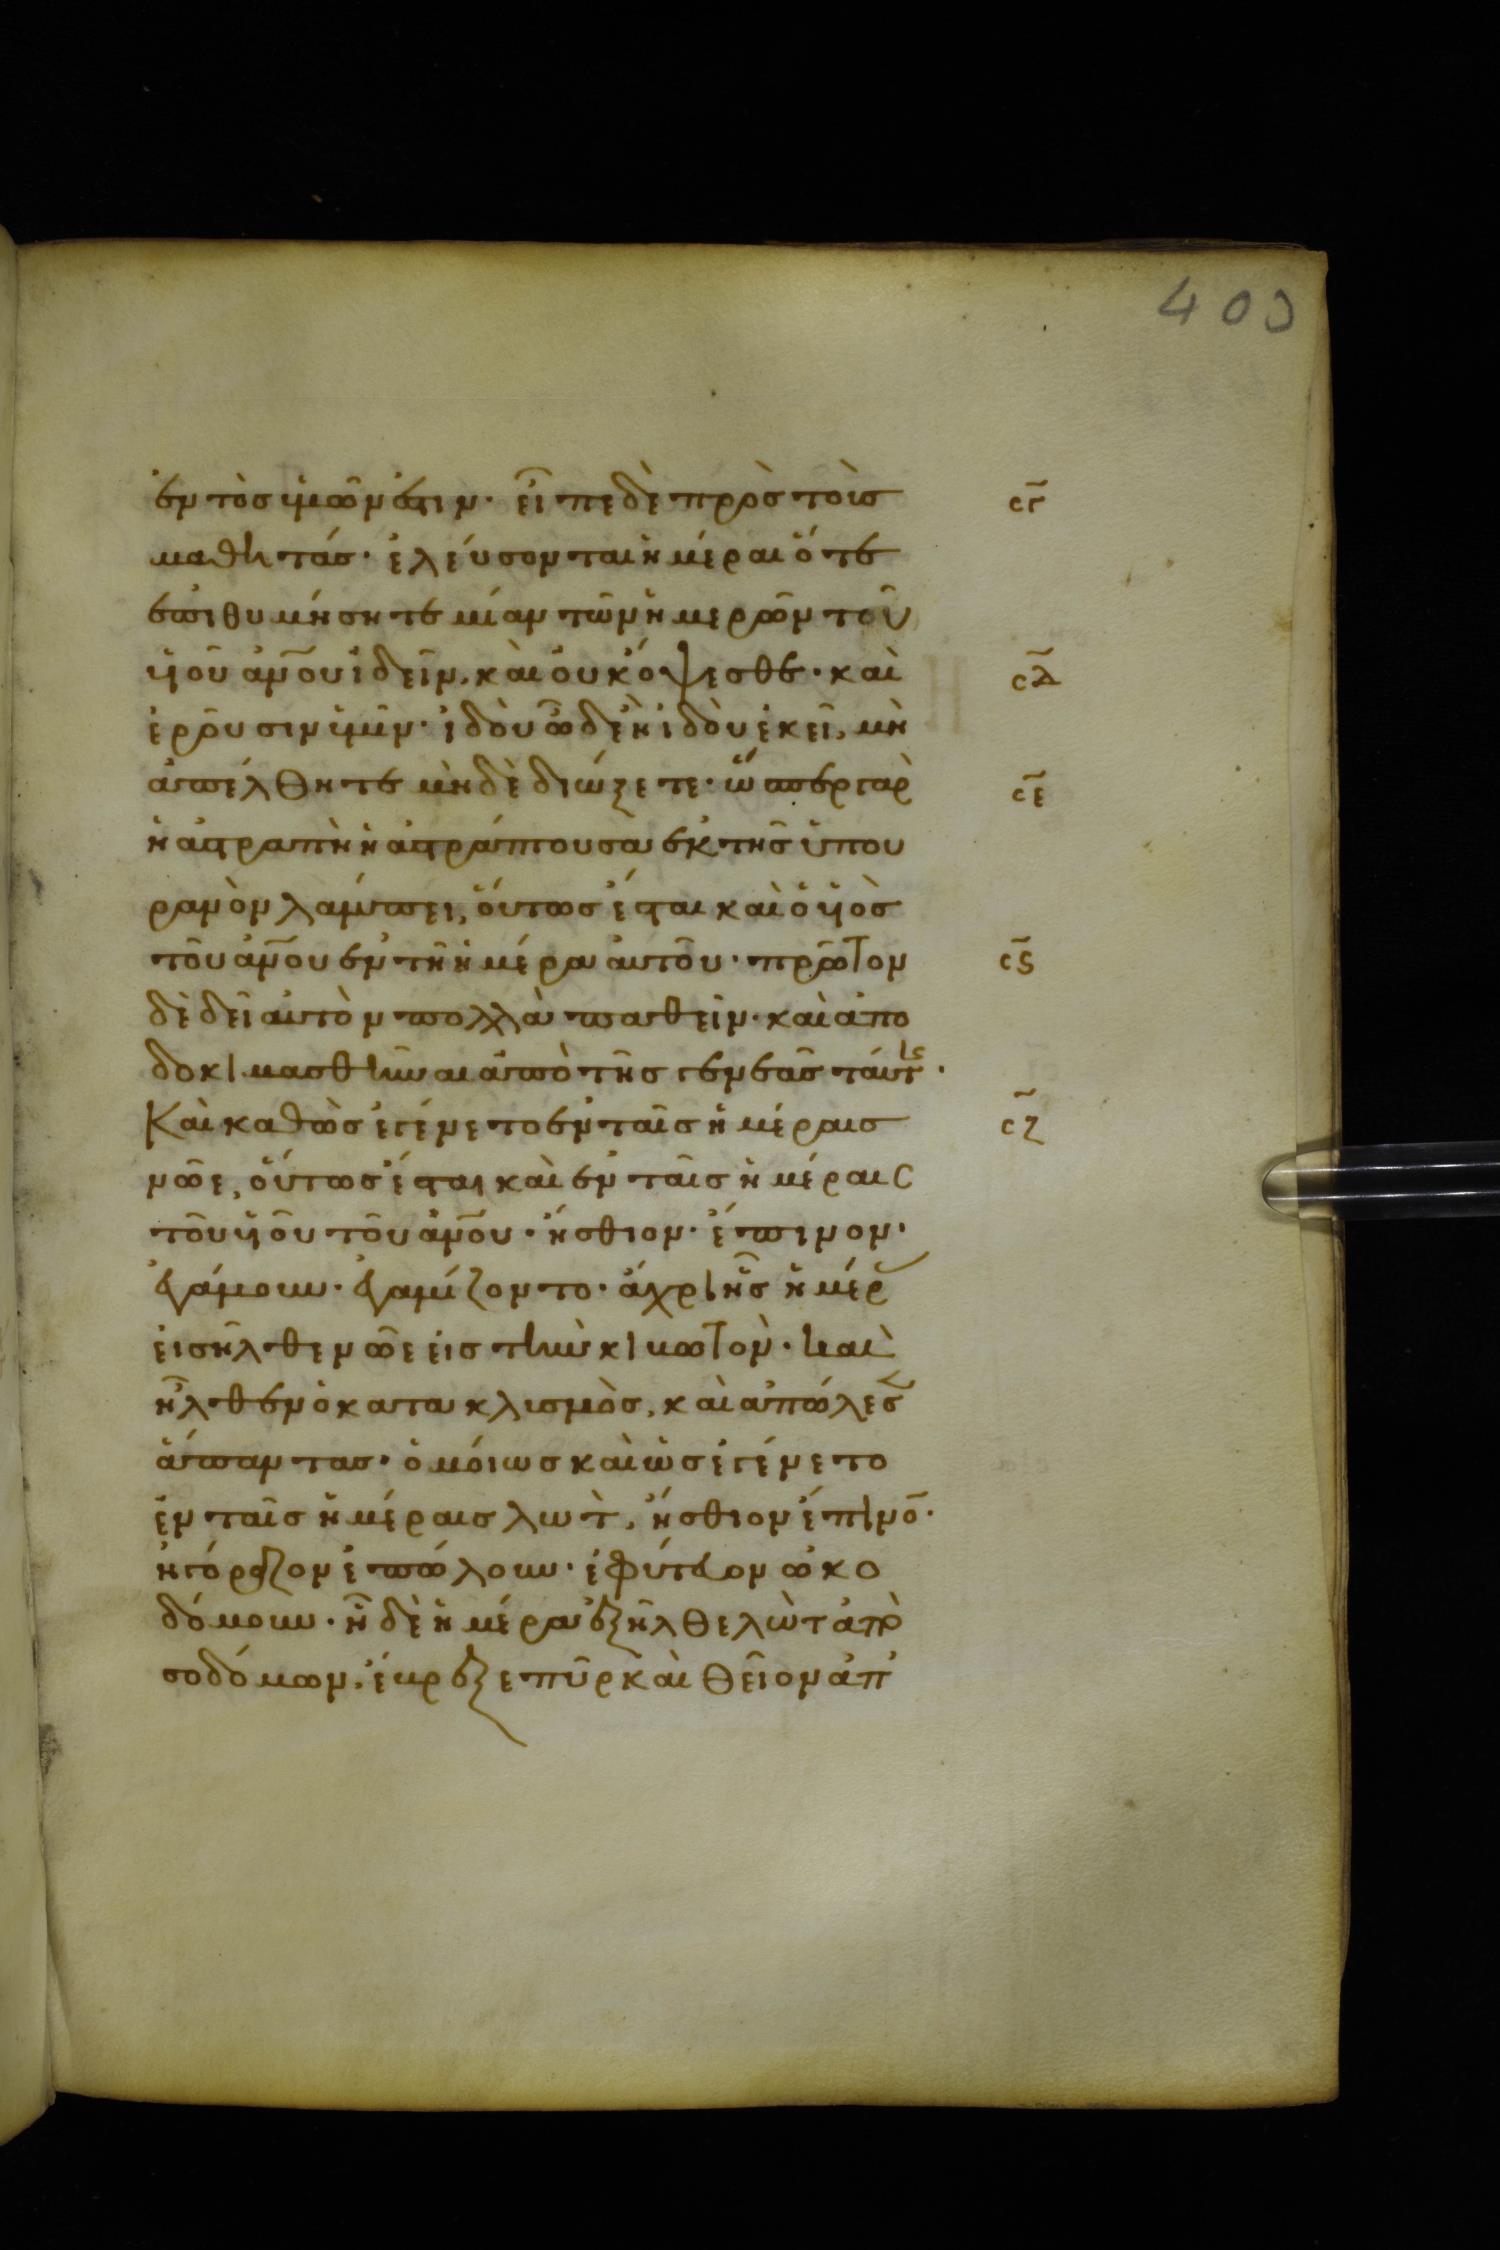 403
ἐντὸσ ὑμῶν ἐστιν· εἶπε δὲ πρὸσ τοὺσ σγ
μαθητάσ· ἐλεύσονται ἡμέραι ὅτε
ἐπιθυμήσητε μίαν τῶν ἡμερῶν τοῦ
υἱοῦ ἀν̅ου ἰδεῖν, καὶ οὐκ ὄψεσθε· καὶ σδ
ἐροῦσιν ὑμῖν· ἰδοὺ ὧδε ἢ ἰδοὺ ἐκεῖ, μὴ
ἀπέλθητε μὴδὲ διώξετε· ὥσπερ γὰρ σε
ἡ ἀστραπὴ ἡ ἀστράπτουσα ἐκ τῆσ ὑπ' οὐ
ρανὸν λάμπει, οὕτωσ ἔσται καὶ ὁ υἱὸσ
τοῦ ἀν̅ου ἐν τῆ ἡμέρα αὐτοῦ· πρῶτον σς
δὲ δεῖ αὐτὸν πολλὰ παθεῖν· καὶ ἀπο
δοκιμασθῆναι ἀπὸ τῆσ γενεᾶσ ταύτησ·
Καὶ καθὼσ ἐγένετο ἐν ταῖσ ἡμέραισ σζ
νῶε, οὕτωσ ἔσται καὶ ἐν ταῖσ ἡμέραισ
τοῦ υἱοῦ τοῦ ἀν̅ου· ἤσθιον· ἔπινον·
ἐγάμουν· ἐγαμίζοντο· ἄχρι ἧσ ἡμέρ
εἰσῆλθε νῶε εἰσ τὴν κιβωτὸν· καὶ
ἦλθεν ὁ κατακλισμὸσ, καὶ ἀπώλεσ
ἅπαντασ· ὁμοίωσ καὶ ὡσ ἐγένετο
ἐν ταῖσ ἡμέραισ λωτ, ἤσθιον ἔπινο̅·
ἠγόραζον ἐπώλουν· ἐφύτευον ὠκο
δόμουν· ἧ δὲ ἡμέρα ἐξῆλθε λὼτ ἀπὸ
σοδόμων, ἔβρεξε πῦρ καὶ θεῖον ἀπ'